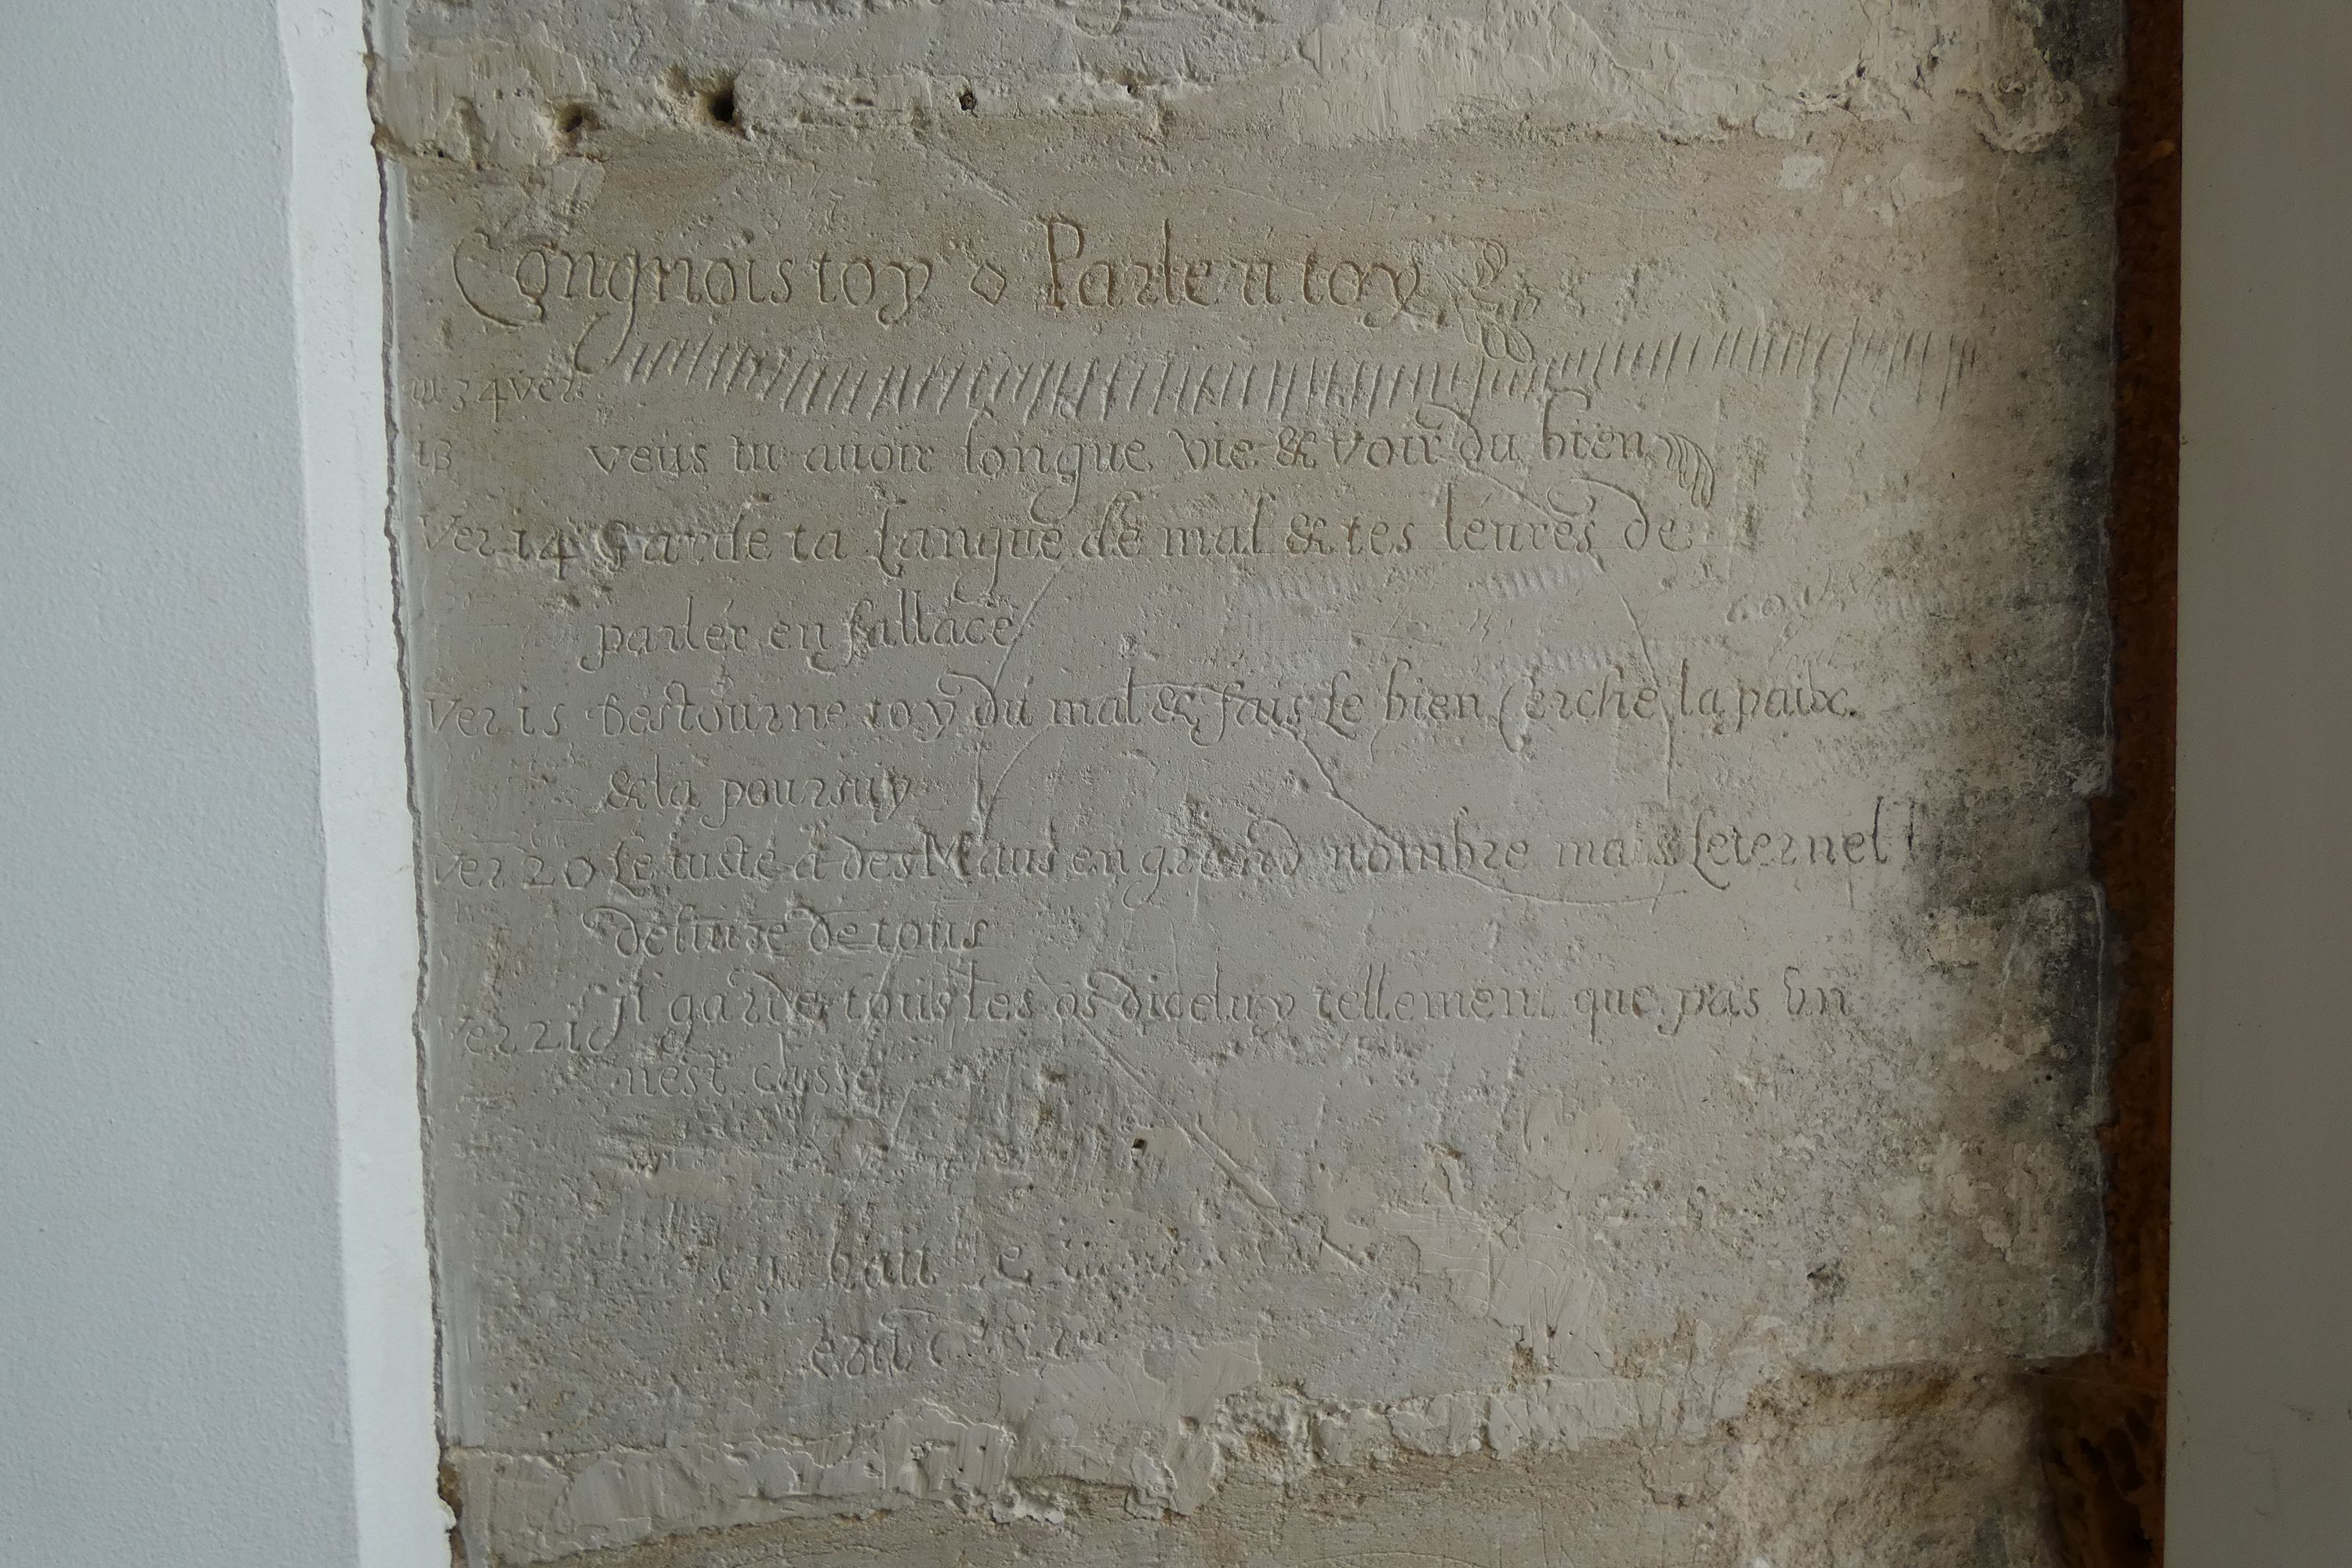 Congnois toy & Parle a toy
34 ver
13 veus tu auoir longue vie & voir du bien
Ver 14 Garde ta langue de mal & tes leures de
parler en fallace
Ver 15 Destourne toy du mal & fais le bien Cerche la paix
& la poursuy
Ver 20 Le iuste a des Maus en grand nombre mais Leternel
deliure de tous
Ver 21 Il garde tous les os diceluy tellement que pas vn
nest casse